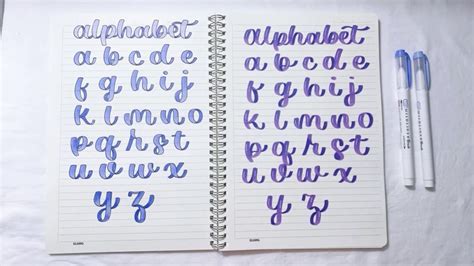 alphabet
a b c d e
f g h i j
k l m n o
p q r s t
u v w x
y z
alphabet
a b c d e
f g h i j
k l m n o
p q r s t
u v w x
y z